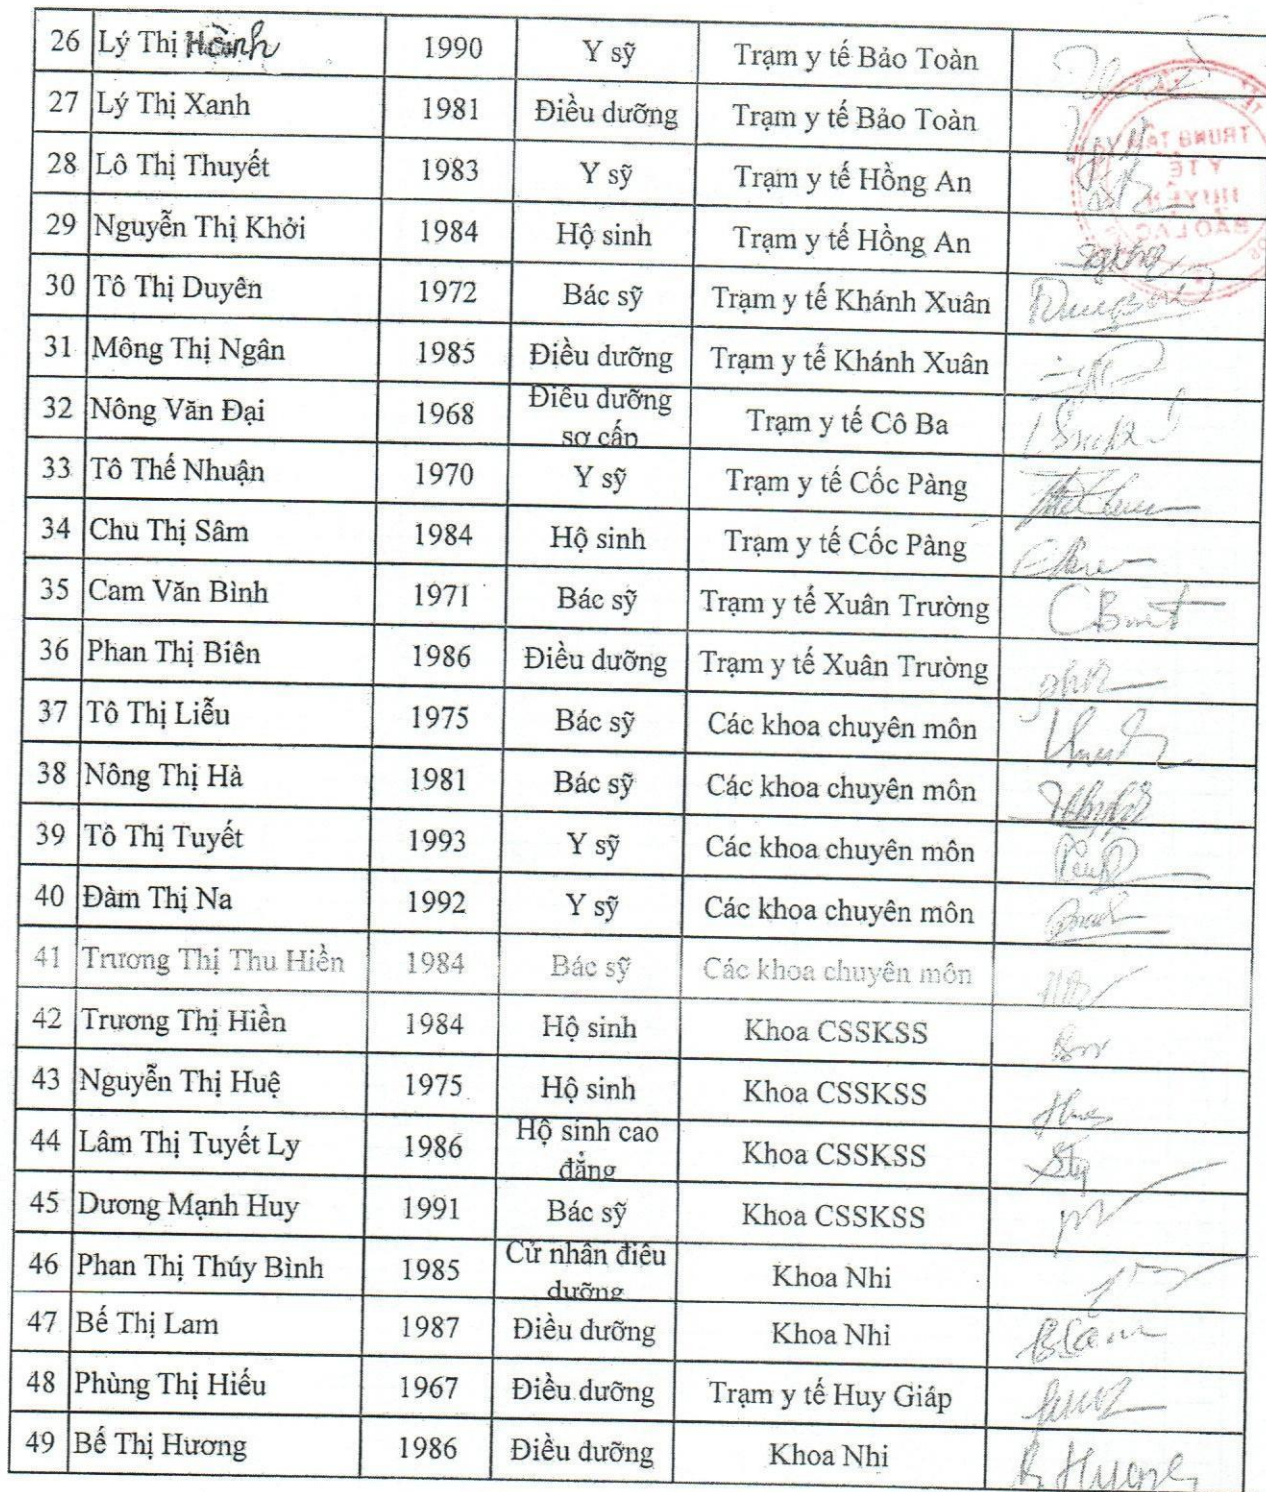 26 Lý Thị Hành 1990 Y sỹ Trạm y tế Bảo Toàn
27 Lý Thị Xanh 1981 Điều dưỡng Trạm y tế Bảo Toàn
28 Lô Thị Thuyết 1983 Y sỹ Trạm y tế Hồng An
29 Nguyễn Thị Khởi 1984 Hộ sinh Trạm y tế Hồng An
30 Tô Thị Duyên 1972 Bác sỹ Trạm y tế Khánh Xuân
31 Mông Thị Ngân 1985 Điều dưỡng Trạm y tế Khánh Xuân
32 Nông Văn Đại 1968 Điều dưỡng sơ cấp Trạm y tế Cô Ba
33 Tô Thế Nhuận 1970 Y sỹ Trạm y tế Cốc Pàng
34 Chu Thị Sâm 1984 Hộ sinh Trạm y tế Cốc Pàng
35 Cam Văn Bình 1971 Bác sỹ Trạm y tế Xuân Trường
36 Phan Thị Biên 1986 Điều dưỡng Trạm y tế Xuân Trường
37 Tô Thị Liễu 1975 Bác sỹ Các khoa chuyên môn
38 Nông Thị Hà 1981 Bác sỹ Các khoa chuyên môn
39 Tô Thị Tuyết 1993 Y sỹ Các khoa chuyên môn
40 Đàm Thị Na 1992 Y sỹ Các khoa chuyên môn
41 Trương Thị Thu Hiền 1984 Bác sỹ Các khoa chuyên môn
42 Trương Thị Hiền 1984 Hộ sinh Khoa CSSKSS
43 Nguyễn Thị Huệ 1975 Hộ sinh Khoa CSSKSS
44 Lâm Thị Tuyết Ly 1986 Hộ sinh cao đẳng Khoa CSSKSS
45 Dương Mạnh Huy 1991 Bác sỹ Khoa CSSKSS
46 Phan Thị Thúy Bình 1985 Cử nhân điều dưỡng Khoa Nhi
47 Bế Thị Lam 1987 Điều dưỡng Khoa Nhi
48 Phùng Thị Hiếu 1967 Điều dưỡng Trạm y tế Huy Giáp
49 Bế Thị Hương 1986 Điều dưỡng Khoa Nhi
TRUNG TÂM
Y TẾ
HUYỆN
BẢO LẠC